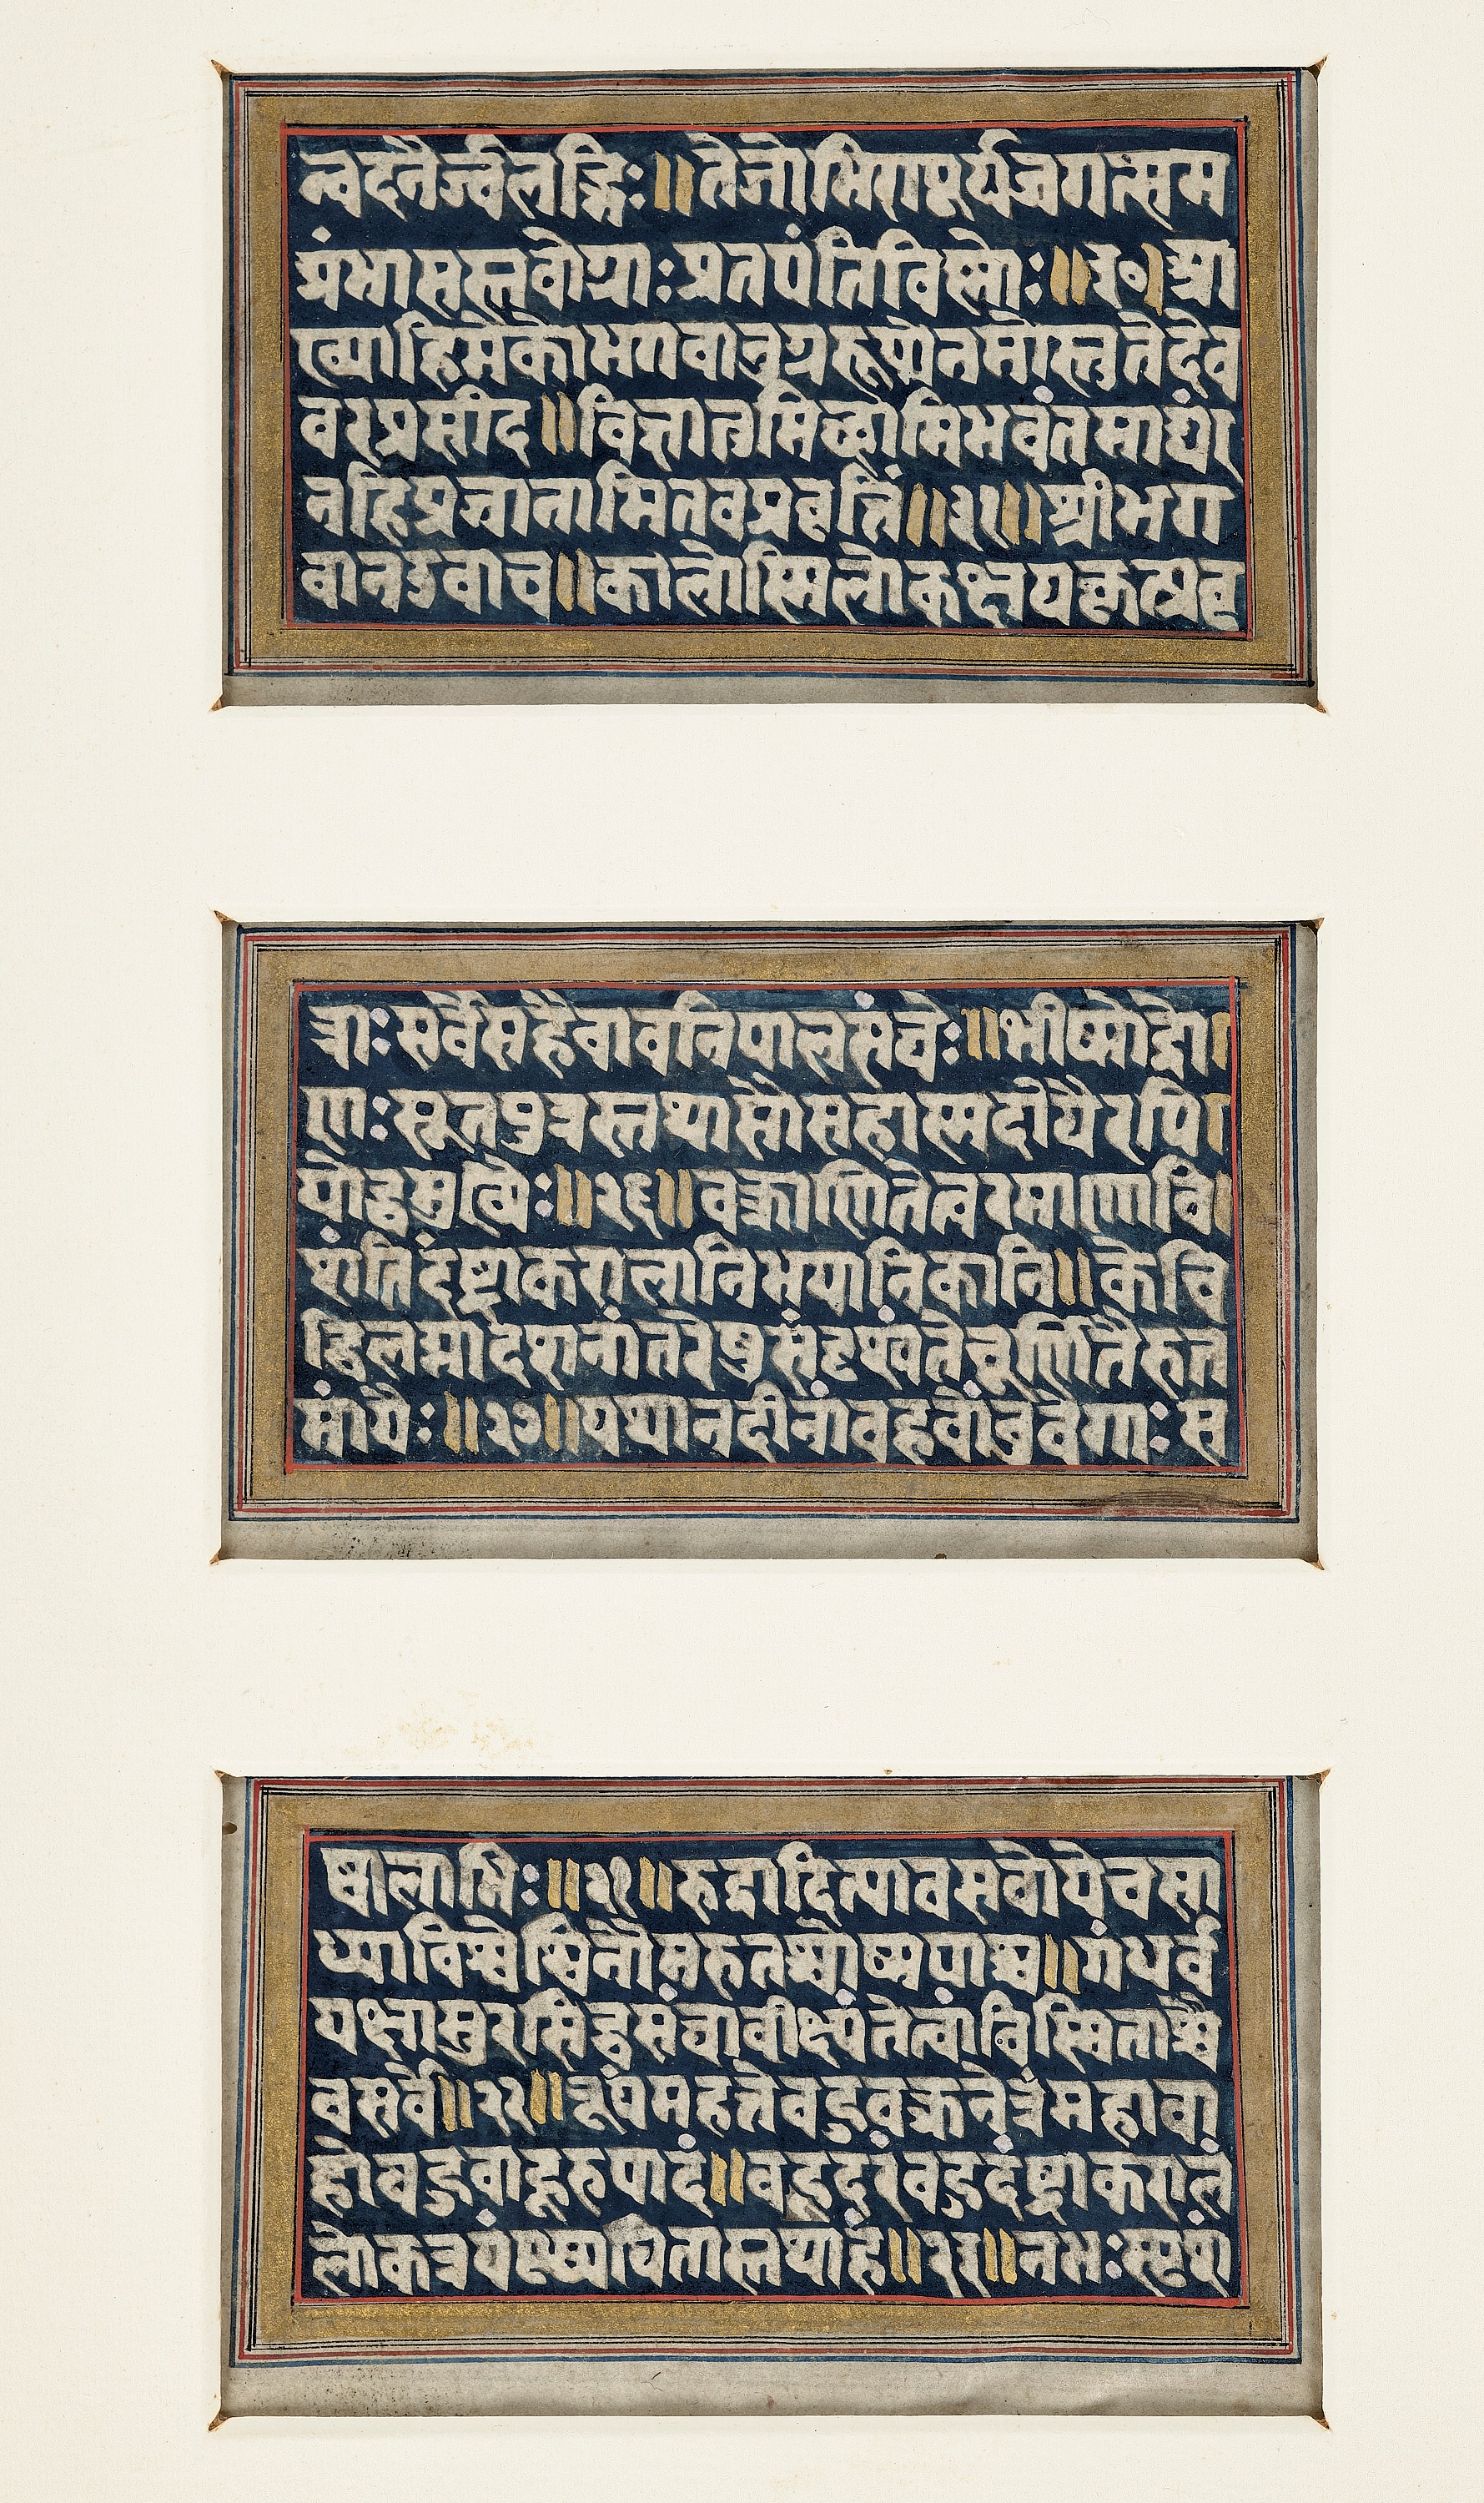 न्वदनैर्ज्वलद्भिः॥तेजोभिरापूर्यजगत्सम
ग्रंभासस्तवोग्राः प्रतपंतिविस्मोः॥३०।आ
ख्याहिमेकोभगवानुग्ररूपोनमोस्तुतेदेव
वरप्रसीद॥विज्ञातुमिछामिभवंतमाद्यं
नहिप्रजानामितवप्रवृत्तिं॥३१॥श्रीभग
वानउवाच॥कालोस्मिलोकक्षयकृत्प्रवृ
त्राः सर्वेसहैवावनिपालसंघैः॥भीष्मोद्रो।
णः सूतपुत्रस्तथासौसहास्मदीयैरपि।
योद्धमुख्यैः॥२६॥वक्राणितेत्वरमाणावि।
शंतिदंष्ट्राकरालानिभयानिकानि॥केचि
द्विलग्नादशनांतरेषुसंदृश्यंतेचूर्णितैरुत
मांगैः॥२७॥यथानदीनांवहवोंवुवेगाः स
ष्कलाभिः॥२१॥रुद्रादित्यावसवोयेचसा
ध्याविश्वेश्विनौमरुतश्चोष्मपाश्च॥गंधर्व
यक्षासुरसिद्धसंघावीक्ष्यंतेत्वांविस्मिताश्चै
वसर्वे॥२२॥रूपंमहत्तेवहुवक्रनेत्रंमहावा
होवहुवाहूरुपादं॥वहूदरंवहुदंष्ट्राकरालं
लोकत्रयंदृष्ट्वाव्यथितास्तथाहं॥२३॥नभः स्पृशं